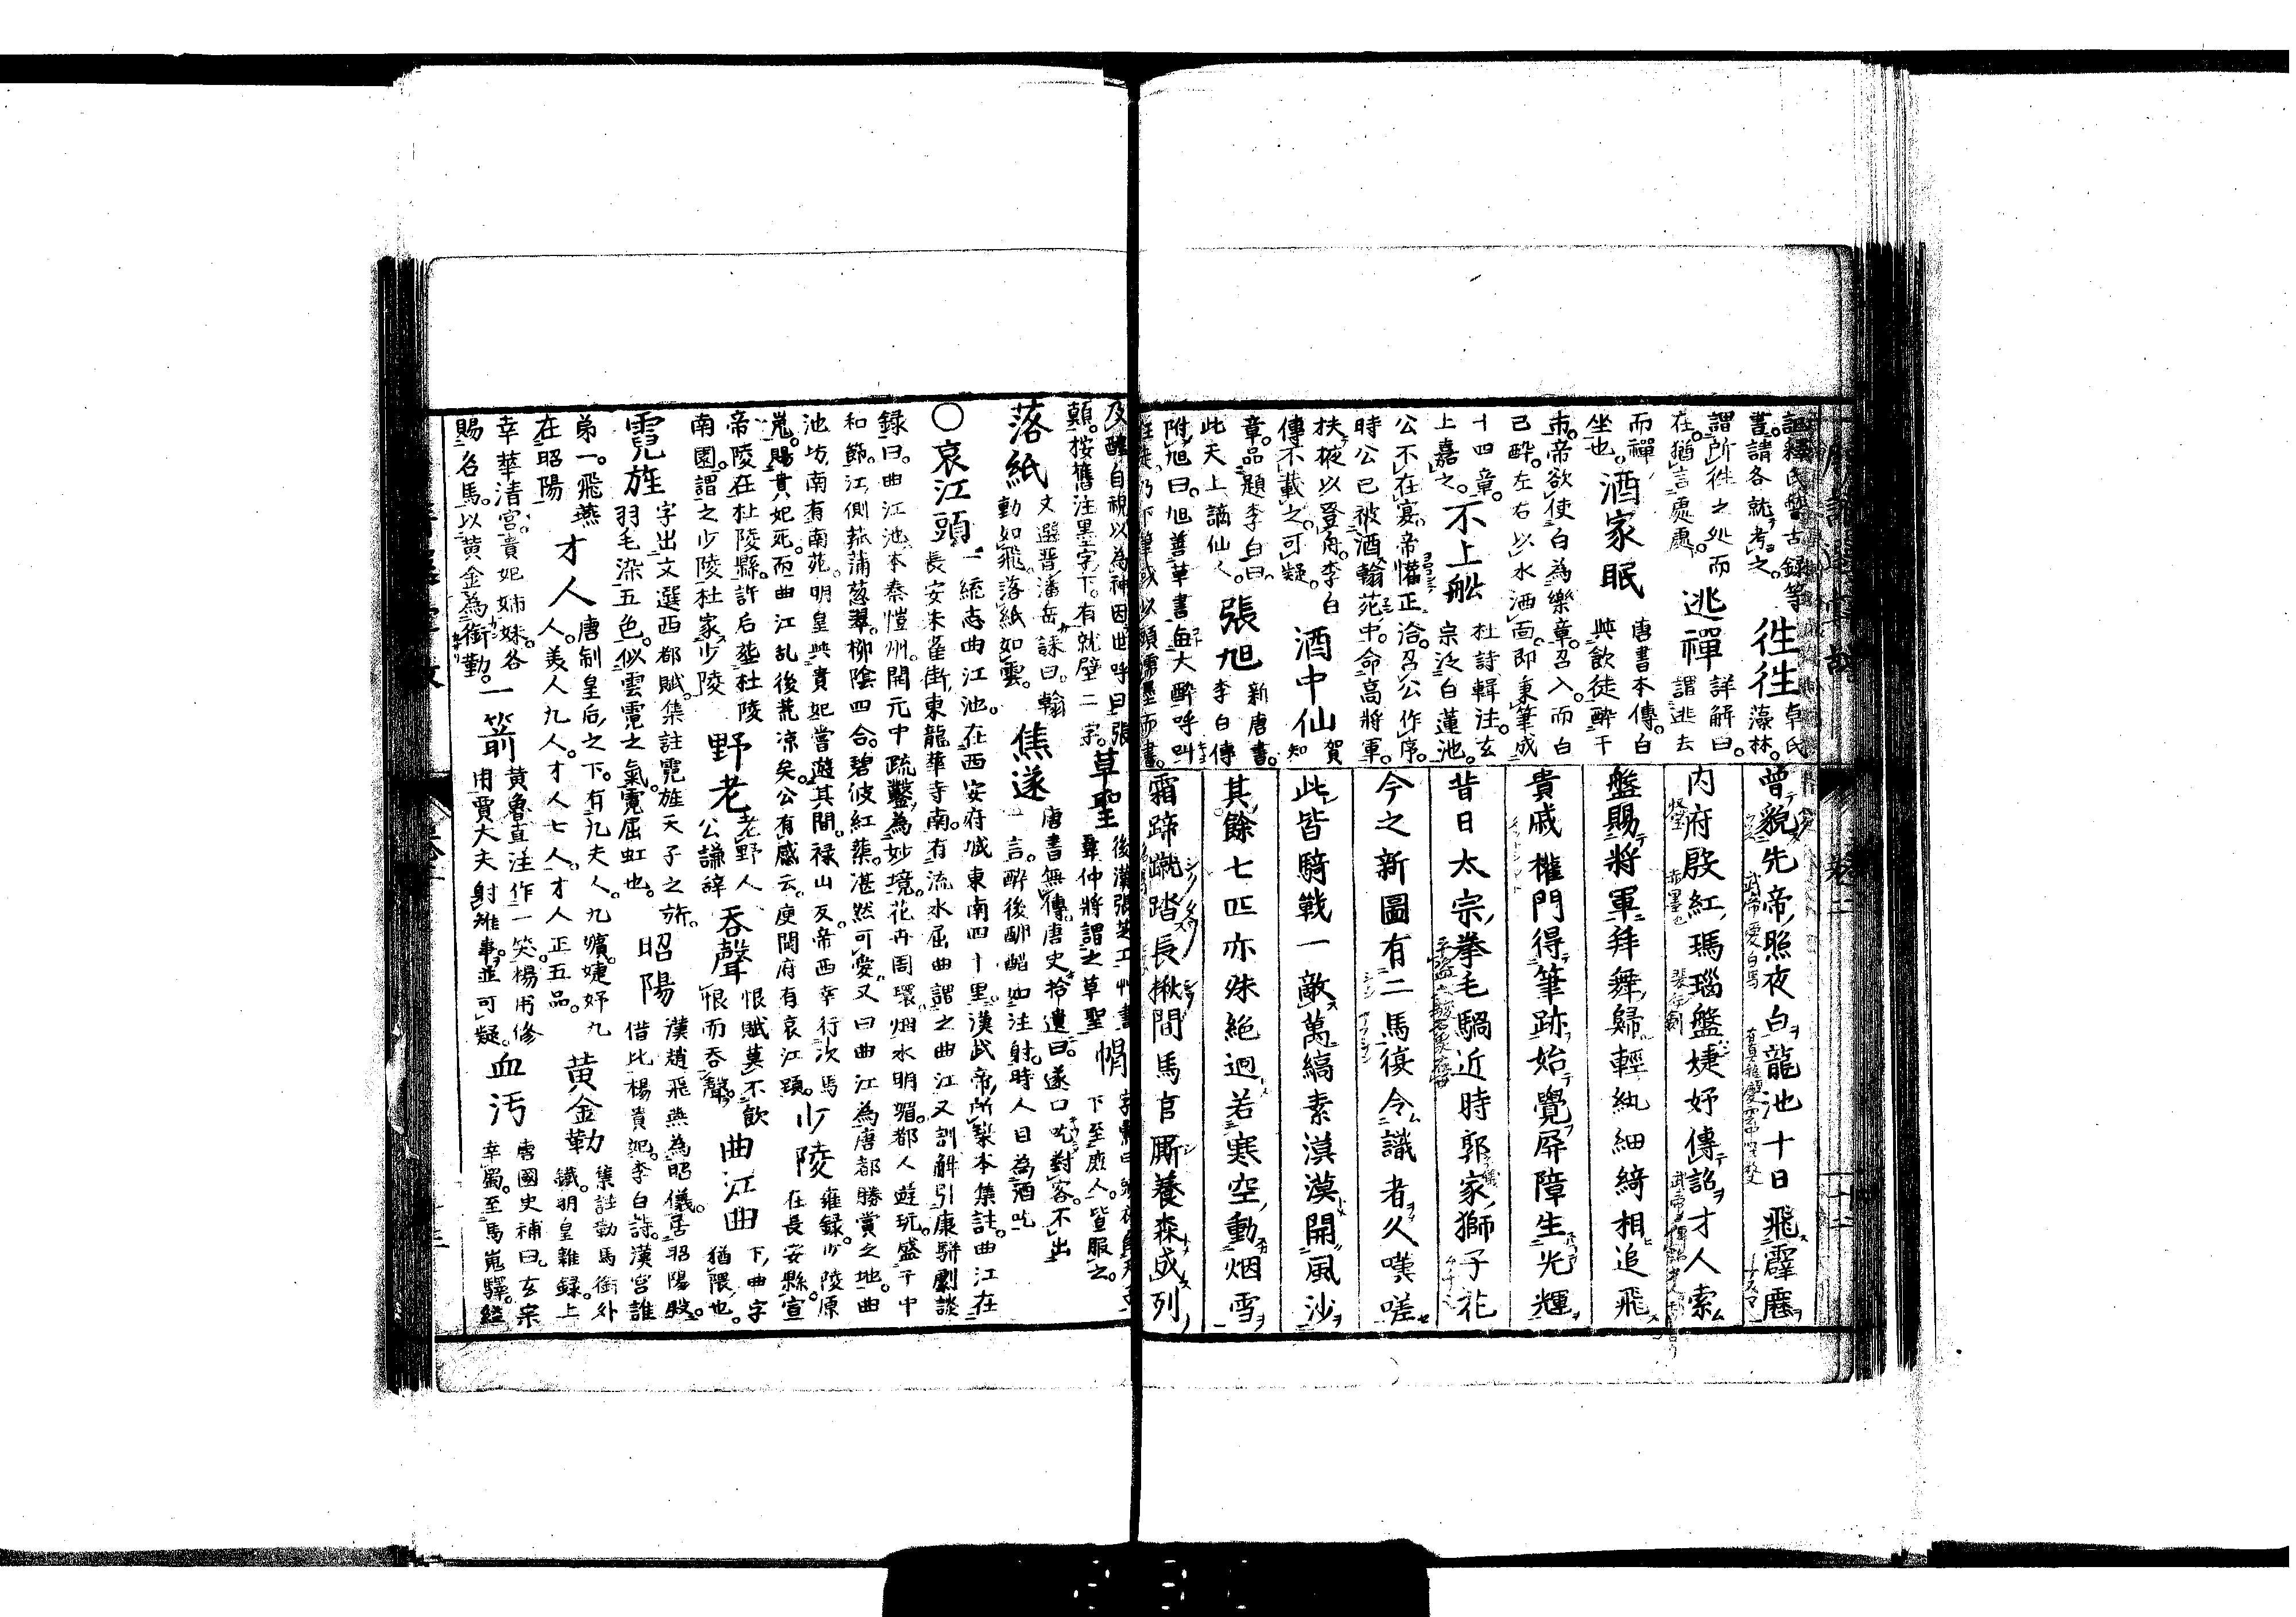 書請各就考之 往往 卓氏藻林
謂所往之処而在猶言處處 逃禪 詳解曰謂逃去
而禪坐也 酒家眠 唐書本傳白與飲徒醉于
市帝欲使白為樂章召入而白
已醉左右以水洒面即秉筆成
十四章上嘉之 不上船 杜詩輯注玄宗泛白蓮池
公不在宴帝懽正洽召公作序
時公已被酒翰苑中命高將軍
扶掖以登舟李白傳不載之可疑 酒中仙 賀知
章品題李白曰此天上謫仙人 張旭 新唐書李白傳
附旭曰旭善草書大醉呼叫
曾貌先帝照夜白龍池十日飛霹靂
内府殷紅瑪瑙盤婕妤傳詔才人索
盤賜將軍拜舞歸輕紈細綺相追飛
貴戚權門得筆跡始覺屏障生光輝
昔日太宗拳毛騧近時郭家獅子花
今之新圖有二馬復令識者久嘆嗟
此皆騎戰一敵萬縞素漠漠開風沙
其餘七匹亦殊絕迥若寒空動烟雪
霜蹄蹴踏長楸間馬官厮養森成列
及醒自視以為神因世呼曰張
顛按舊注墨字下有就壁二字 草聖 韋仲將謂之草聖 帽 下至庶人皆服之
落紙 文選晋潘岳誄曰翰動如飛落紙如雲 焦遂 唐書無傳唐史拾遺曰遂口吃對客不出一言醉後酬酢如注射時人目為酒吃
○哀江頭 一統志曲江池在西安府城東南四十里漢武帝所鑿本集註曲江在長安朱雀街東龍華寺南有流水屈曲謂之曲江又訓解引康駢劇談
録曰曲江池本秦愷州開元中疏鑿為妙境花卉周環烟水明媚都人遊玩盛于中
和節江側菰蒲葱翠柳陰四合碧波紅蕖湛然可愛又曰曲江為唐都勝賞之地曲
池坊南有南苑明皇與貴妃嘗遊其間祿山反帝西幸行次馬
嵬賜貴妃死而曲江乱後荒凉矣公有感云庾開府有哀江頭 少陵 雍録少陵原在長安縣宣
帝陵在杜陵縣許后塟杜陵
南園謂之少陵杜家少陵 野老 老野人公謙辞 吞聲 恨賦莫不飲恨而吞聲 曲江曲 下曲字猶隈也
霓旌 字出文選西都賦集註霓旌天子之旂羽毛染五色似雲霓之氣霓屈虹也 昭陽 漢趙飛燕為昭儀居昭陽殿借比楊貴妃李白詩漢宮誰
弟一飛燕在昭陽 才人 唐制皇后之下有九夫人九嬪婕妤九人美人九人才人七人才人正五品 黄金勒 集註勒馬銜外鐵明皇雜録上
幸華清宮貴妃姉妹各
賜名馬以黄金為銜勒 一箭 黄魯直注作一笑楊用修用賈大夫射雉事並可疑 血汚 唐國史補曰玄宗幸蜀至馬嵬驛縊